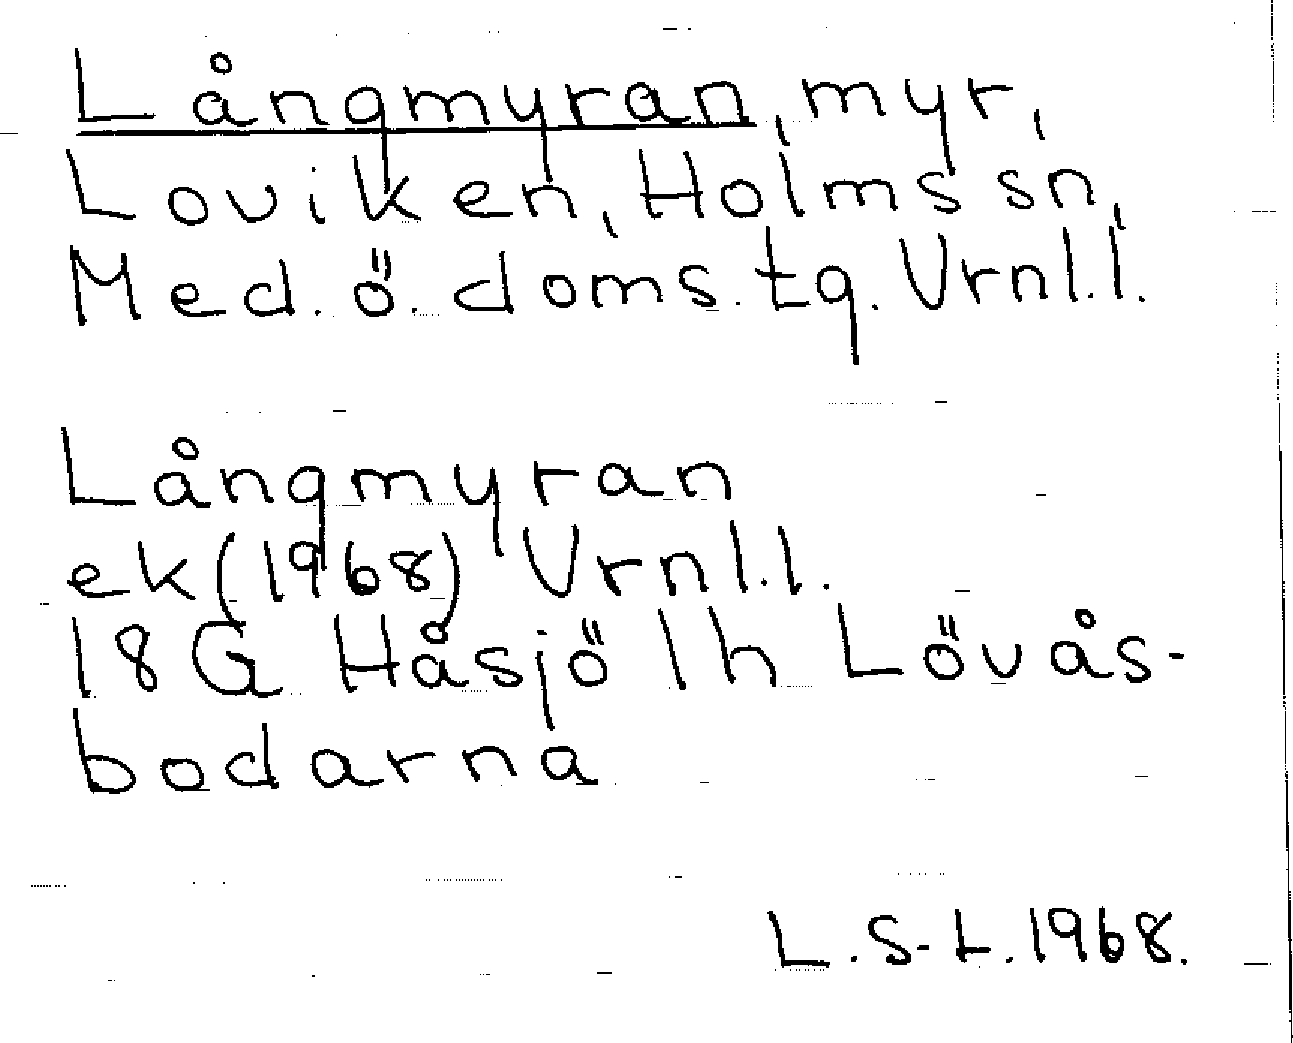 Långmyran, myr,
Loviken, Holms sn,
Med. ö. doms. tg. Vrnl.l.
Långmyran
ek (1968) Vrnl.l.
18G Håsjö 1h Lövås-
bodarna
L. S-L. 1968.